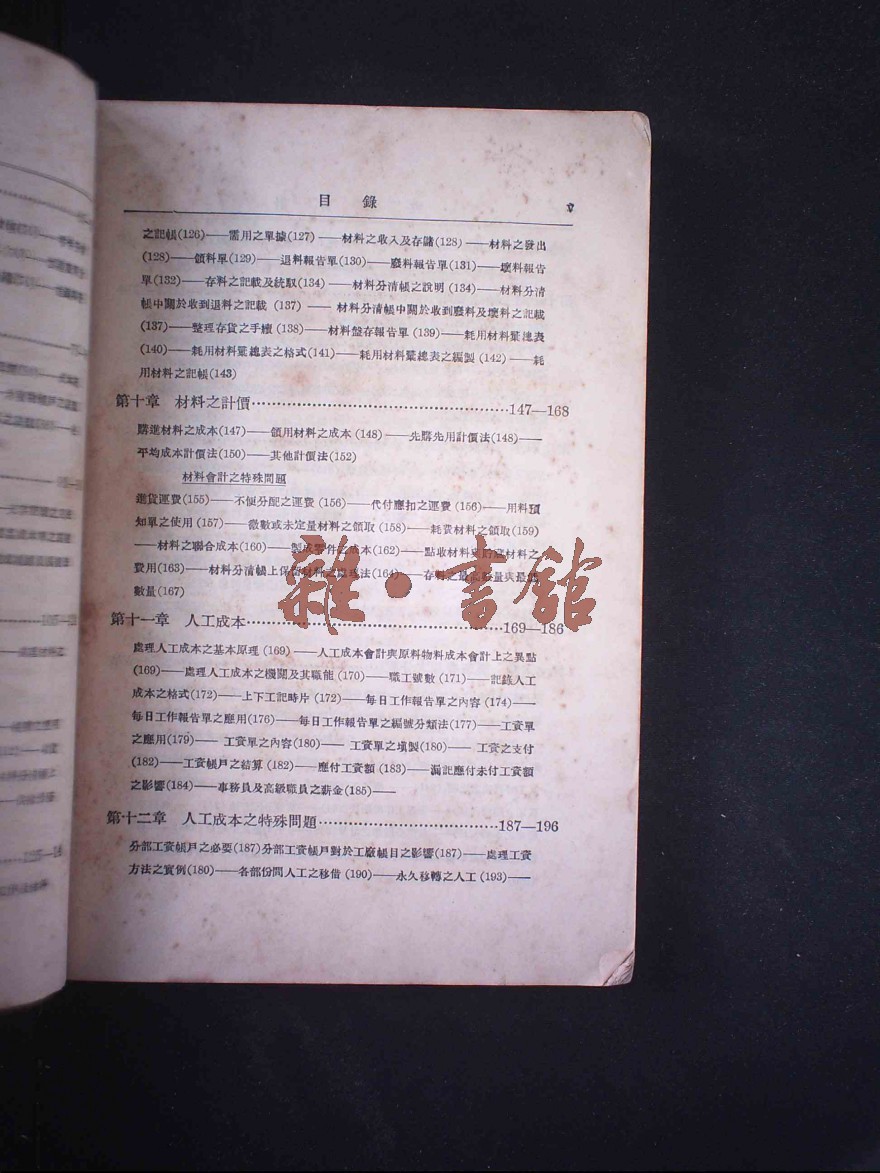 目錄
之記帳(126)——需用之單據(127)——材料之收入及存儲(128)——材料之發出
(128)——領料單(129)——退料報告單(130)——廢料報告單(131)——壞料報告
單(132)——存料之記載及統馭(134)——材料分清帳之說明(134)——材料分清
帳中關於收到退料之記載 (137)——材料分清帳中關於收到廢料及壞料之記載
(137)——整理存貨之手續(138)——材料盤存報告單(139)——耗用材料彙總表
(140)——耗用材料彙總表之格式(141)——耗用材料彙總表之編製(142)——耗
用材料之記帳(143)
第十章 材料之計價……………………………………………147—168
購進材料之成本(147)——領用材料之成本(148)——先購先用計價法(148)——
平均成本計價法(150)——其他計價法(152)
材料會計之特殊問題
進貨運費(155)——不便分配之運費(156)——代付應扣之運費(156)——用料預
知單之使用(157)——微數或未定量材料之領取(158)——耗費材料之領取(159)
——材料之聯合成本(160)——製成零件之成本(162)——點收材料與貯藏材料之
費用(163)——材料分清帳上保留材料之處理法(164)——存料之最高數量與最低
數量(167)
雜·書館
第十一章 人工成本……………………………………………169—186
處理人工成本之基本原理(169)——人工成本會計與原料物料成本會計上之異點
(169)——處理人工成本之機關及其職能(170)——職工號數(171)——記錄人工
成本之格式(172)——上下工記時片(172)——每日工作報告單之內容(174)——
每日工作報告單之應用(176)——每日工作報告單之編號分類法(177)——工資單
之應用(179)——工資單之內容(180)——工資單之填製(180)——工資之支付
(182)——工資帳戶之結算(182)——應付工資額(183)——漏記應付未付工資額
之影響(184)——事務員及高級職員之薪金(185)——
第十二章 人工成本之特殊問題………………………………187—196
分部工資帳戶之必要(187)分部工資帳戶對於工廠帳目之影響(187)——處理工資
方法之實例(180)——各部份間人工之移借(190)——永久移轉之人工(193)——